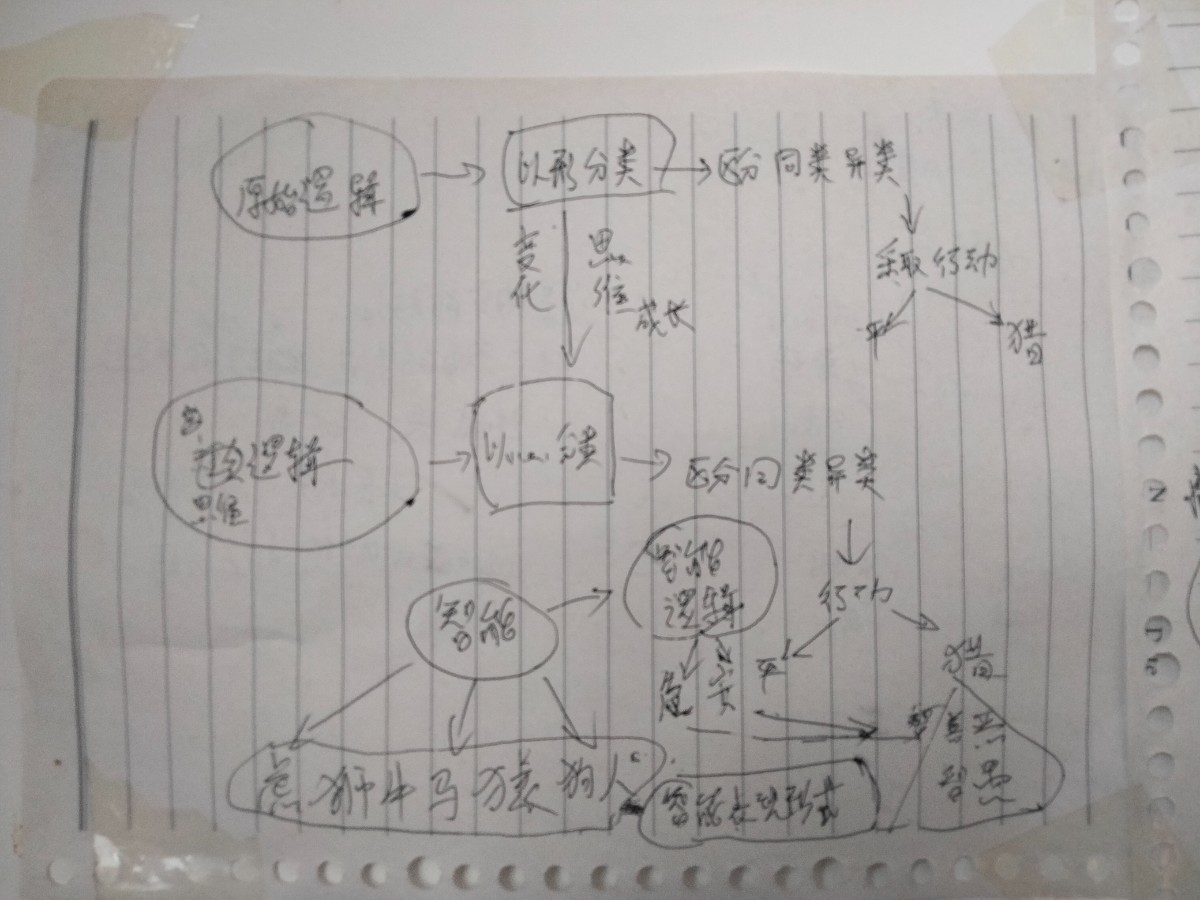 原始逻辑
以形分类
区分同类异类
采取行动
平
猎
变化
思维
成长
逻辑
思维
以
分类
区分同类异类
行动
平
猎
智能
智能
逻辑
鱼 狮 牛 马 猿 狗 人
智能表现形式
善 恶
智 愚